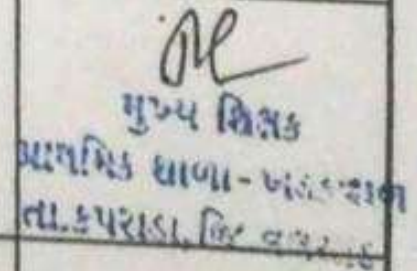 મુખ્ય શિક્ષક
પ્રાથમિક શાળા -
તા.કપરાડા, જિ